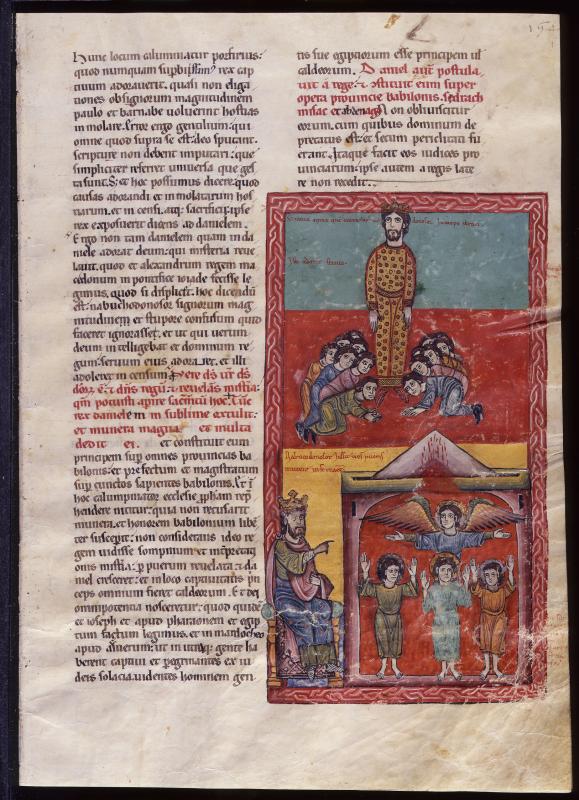 Hunc locum calumniatur porfirius:
quod numquam supbissim' rex cap
tiuum adorauerit. quasi non
ob signorum magnitudinem
paulo et barnabe uoluerint hostias
inmolare. Error ergo gentilium: qui
omne quod supra se est: deo putant.
scripture non debent imputari: que
simpliciter referret uniuersa que ges
ta sunt. S; et hoc possumus dicere: quod
causas adorandi et inmolatarum hos
tiarum. et incensi. atq; sacrificii: ipse
rex exposuerit dicens ad danielem.
Ergo non tam danielem quam in da
niele adorat deum: qui misteria reue
lauit. quod et alexandrum regem ma
cedonum in pontifice ioiade fecisse le
gimus. quod si displicet: hoc dicendū
est: nabuchodonosor signorum mag
nitudinem et stupore confusum quid
faceret ignorasset. et ut qui uerum
deum intelligebat et dominum re
gum: seruum eius adoraret. et illi
adoleret incensum. Vere ds ur ds
deorz ē: et dns regū: et reuelās misteria:
qm potuisti apire sacmtū hoc. Tūc
rex danielem in sublime extulit:
et munera magna et multa
dedit ei. et constituit eum
principem sup omnes prouincias ba
bilonis: et prefectum et magistratum
sup cunctos sapientes babilonis. Et ī
hoc calumpniator ecclesie: ppham rep
hendere nititur: quia non recusarit
munera. et honorem babilonium libē
ter susceperit: non considerans ideo re
gem uidisse sompnium: et intpretaq
onis misteria p puerum reuelata: ut da
niel cresceret: et in loco captiuitatis pn
ceps omnium fieret caldeorum. Et dei
omnipotentia nosceretur: quod quidē
et ioseph et apud pharaonem et egip
tum factum legimus. et in mardocheo
apud asuerum: ut in utraq; gente ha
berent captiui et pegrinantes ex iu
deis solacia. uidentes hominem gen
tis sue egiptiorum esse principem ul
caldeorum. Daniel aut postula
uit a rege: et stituit eum super
opera prouincie babilonis. sedrach
misac et abdenago. Non obliuiscitur
eorum. cum quibus dominum de
precatus est: et secum periclitati fu
erant. Itaque facit eos iudices pro
uinciarum: ipse autem a regis late
re non recedit.